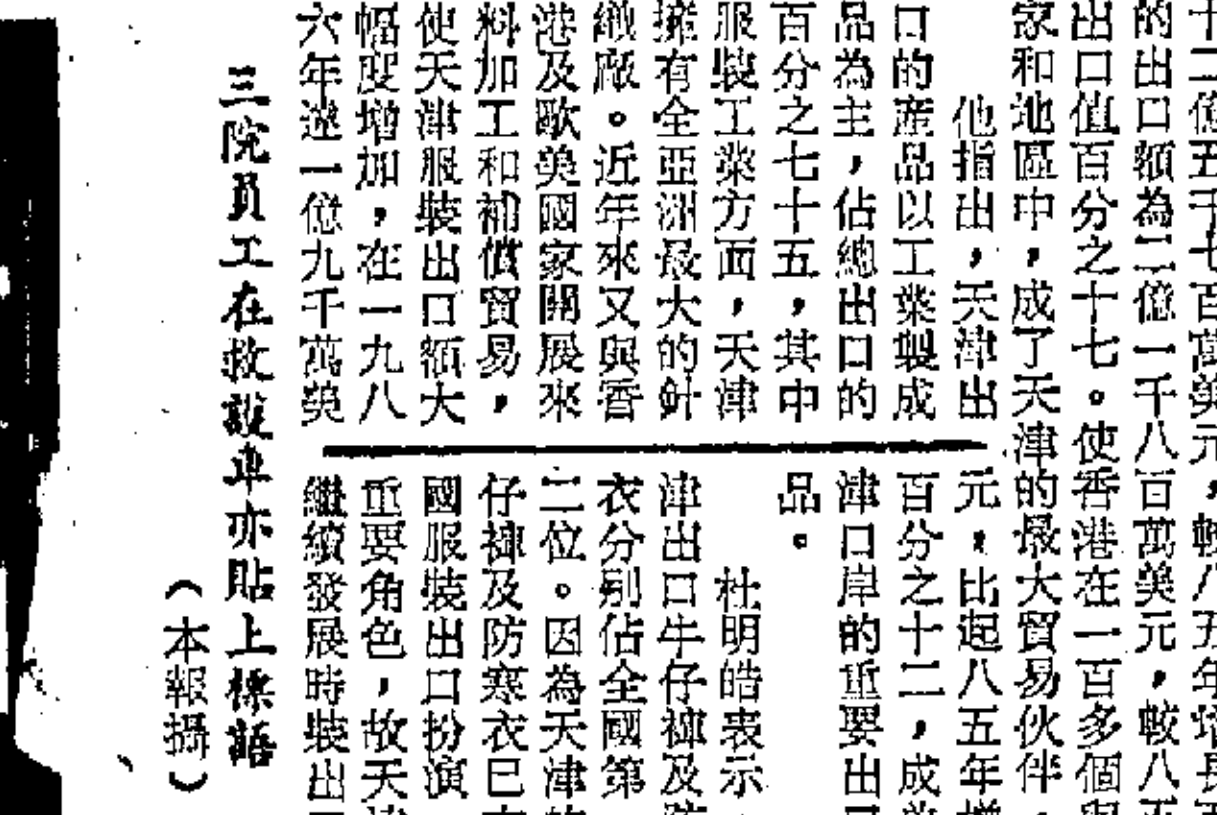 十二億五千七百萬美元，較八五年增長
的出口額為二億一千八百萬美元，較八五
出口值百分之十七。使香港在一百多個與
家和地區中，成了天津的最大貿易伙伴。
他指出，天津出
口的產品以工業製成
品為主，佔總出口的
百分之七十五，其中
服裝工業方面，天津
擁有全亞洲最大的針
織廠。近年來又與香
港及歐美國家開展來
料加工和補償貿易，
使天津服裝出口額大
幅度增加，在一九八
六年達一億九千萬美
元，比起八五年增
百分之十二，成為
津口岸的重要出口
品。
杜明皓表示，
津出口牛仔褲及防
衣分別佔全國第
二位。因為天津的
仔褲及防寒衣已在
國服裝出口扮演
重要角色，故天津
繼續發展時裝出口
三院員工在救護車亦貼上標語
（本報攝）